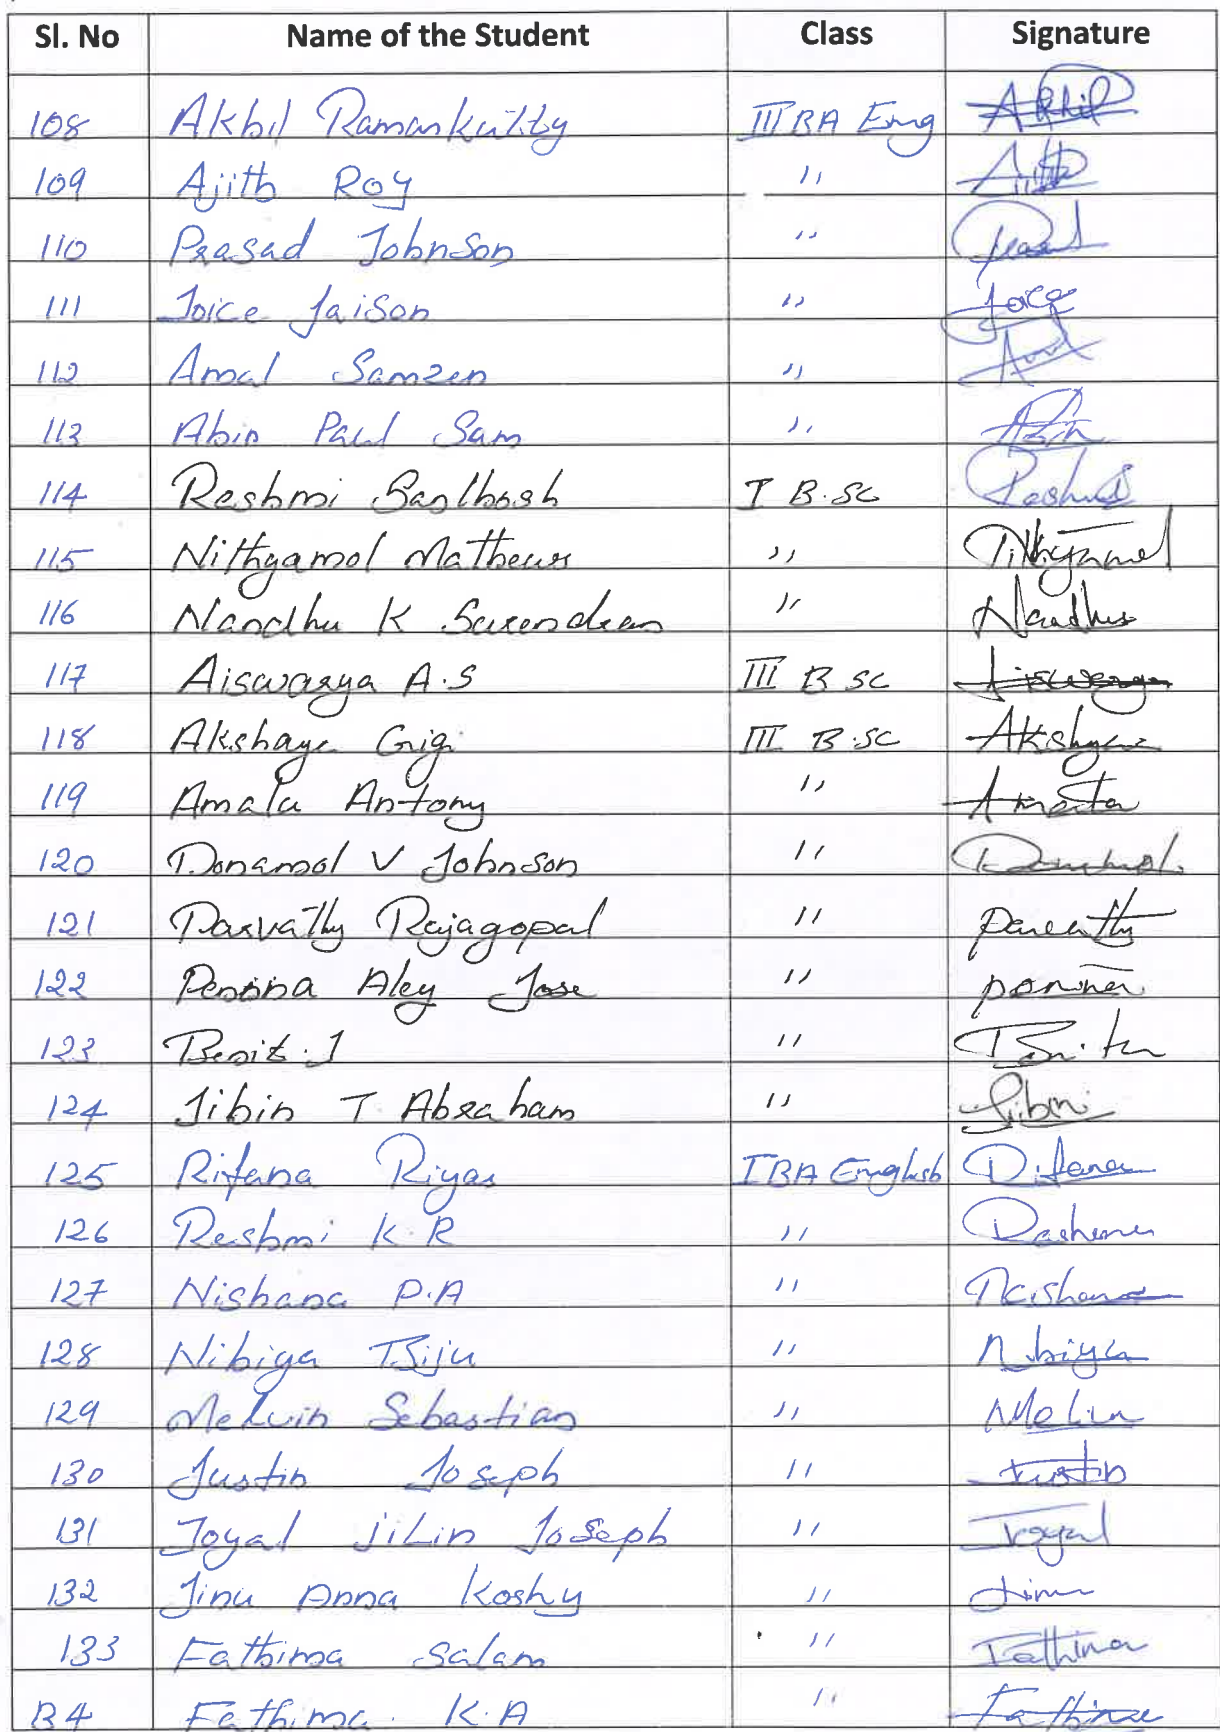 Sl. No Name of the Student Class Signature
108 Akhil Ramankutty III BA Eng Akhil
109 Ajith Roy " Ajith
110 Prasad Johnson " Prasad
111 Joice Jaison " Joice
112 Amal Samzen " Amal
113 Abin Paul Sam " Abin
114 Reshmi Santhosh I B.Sc Reshmi
115 Nithyamol Mathews " Nithyamol
116 Nandhu K Surendran " Nandhu
117 Aiswarya A.S III B Sc Aiswarya
118 Akshaya Gigi III B.Sc Akshaya
119 Amala Antony "
120 Donamol V Johnson " Donamol
121 Parvathy Rajagopal " Parvathy
122 Ponnna Aley Jose "
123 Benit.J "
124 Jibin T Abraham " Jibin
125 Rifana Riyas I BA English Rifana
126 Reshmi K.R "
127 Nishana P.A " Nishana
128 Nibiya Biju " Nibiya
129 Melvin Sebastian " Melvin
130 Justin Joseph " Justin
131 Joyal jiLin Joseph " Joyal
132 Jinu Anna Koshy " Jinu
133 Fathima Salam " Fathima
134 Fathima K.A " Fathima